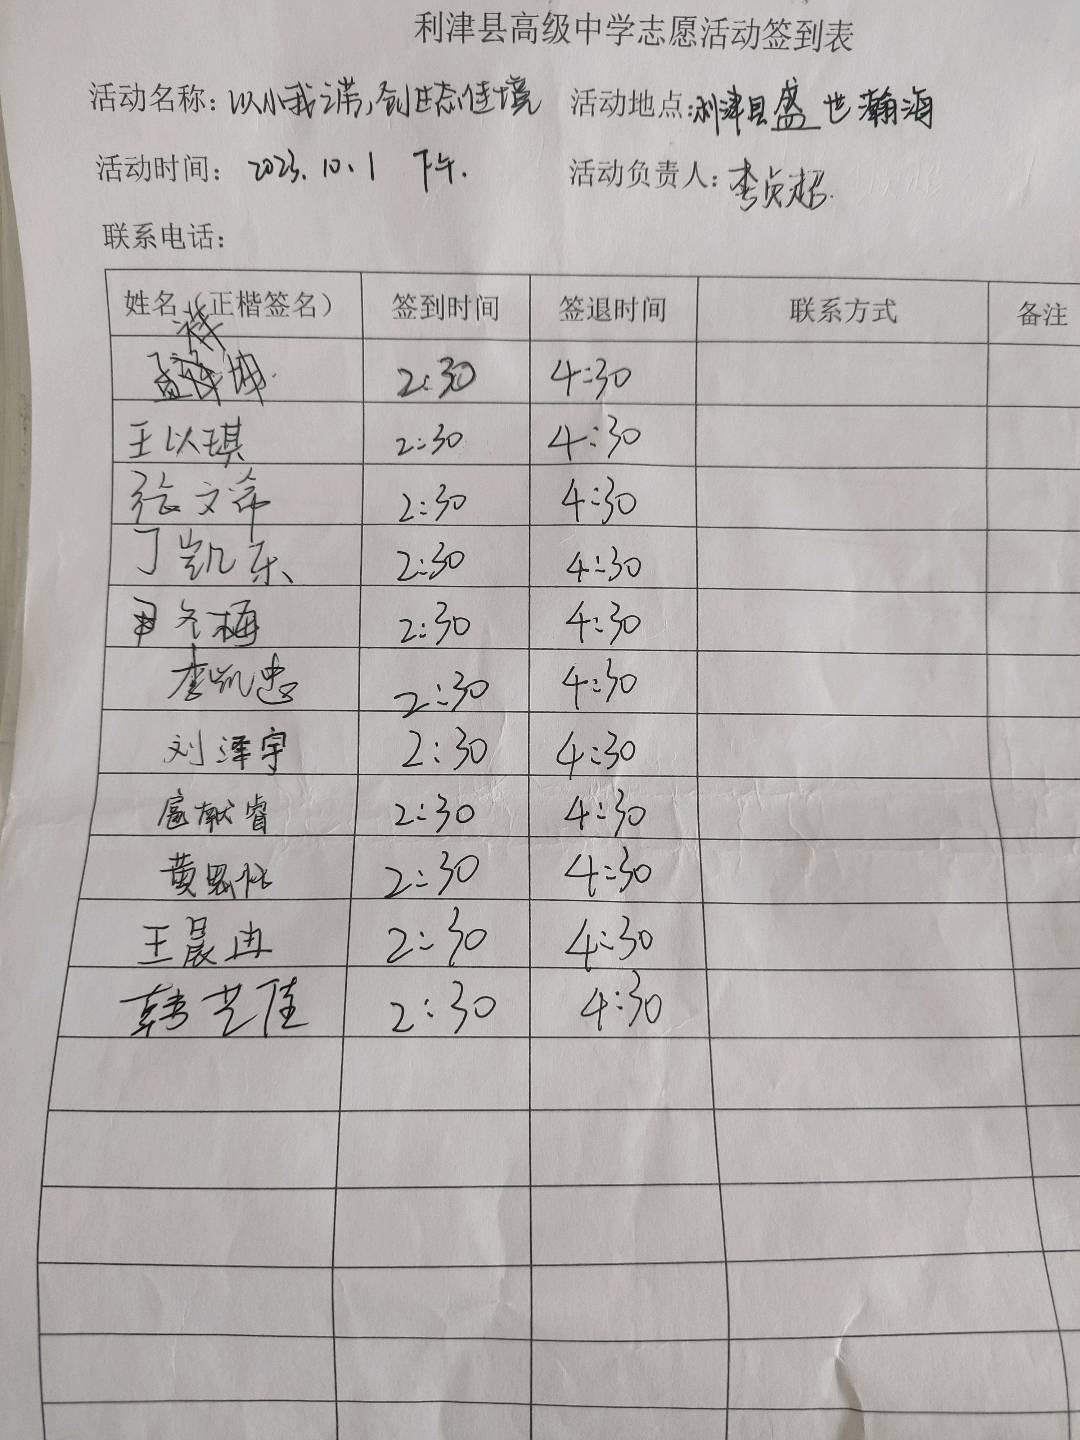 利津县高级中学志愿活动签到表
活动名称：以小我之诺，创生态佳境 活动地点：利津县盛世瀚海
活动时间：2023.10.1 下午.
活动负责人：李贞超.
联系电话：
姓名（正楷签名） 签到时间 签退时间 联系方式 备注
2:30 4:30
王以琪 2:30 4:30
张文希 2:30 4:30
丁凯乐 2:30 4:30
尹冬梅 2:30 4:30
李凯忠 2:30 4:30
刘泽宇 2:30 4:30
扈献睿 2:30 4:30
黄思怀 2:30 4:30
王晨冉 2:30 4:30
韩艺佳 2:30 4:30